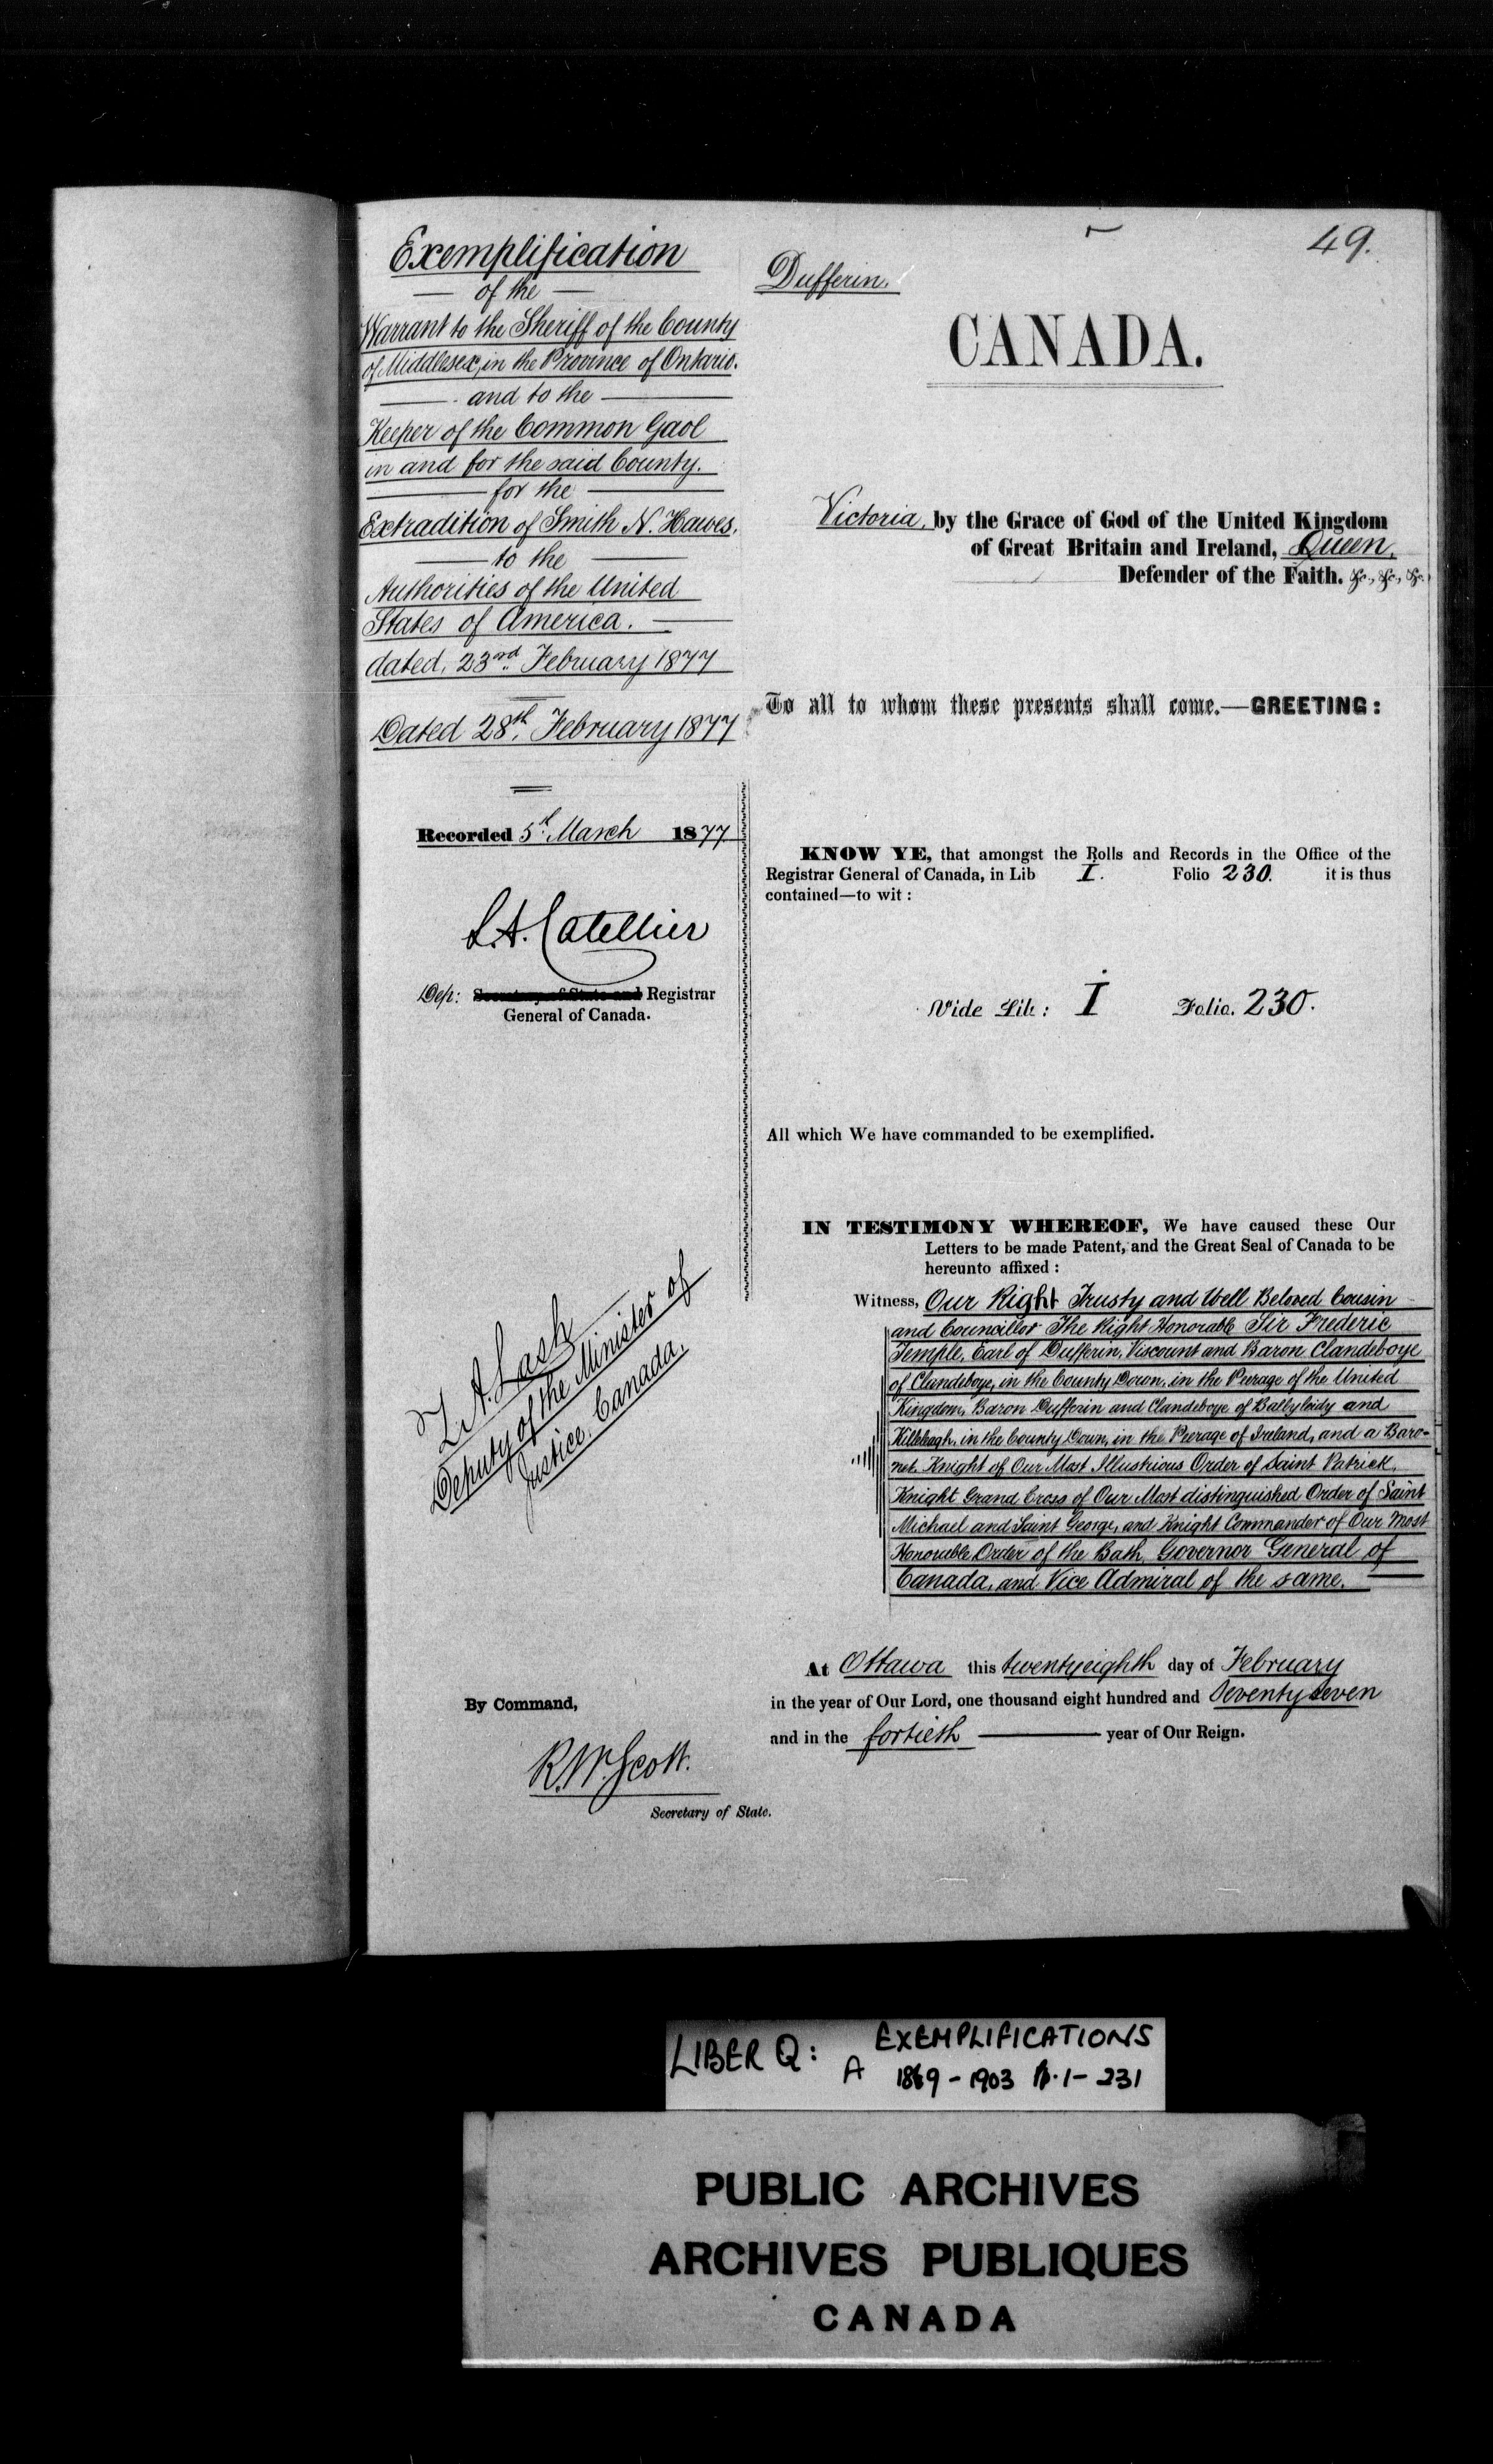 49.
Exemplification
of the
Warrant to the Sheriff of the County
of Middlesex, in the Province of Ontario.
and to the
Keeper of the Common Gaol
in and for the said County.
for the
Extradition of Smith N. Hawes.
to the
Authorities of the United
States of America.
dated, 23rd February 1877
Dated 28th February 1877
Recorded 5th March 1877
L.A. Catellier
Dep: Secretary of State and Registrar
General of Canada.
Z. A. Lash
Deputy of the Minister of
Justice, Canada.
By Command,
R.W. Scott.
Secretary of State.
Dufferin.
CANADA.
Victoria, by the Grace of God of the United Kingdom
of Great Britain and Ireland, Queen,
Defender of the Faith. &c., &c., &c.,
To all to whom these presents shall come.—GREETING:
KNOW YE, that amongst the Rolls and Records in the Office of the
Registrar General of Canada, in Lib I. Folio 230. it is thus
contained—to wit:
Vide Lib: I Folio. 230.
All which We have commanded to be exemplified.
IN TESTIMONY WHEREOF, We have caused these Our
Letters to be made Patent, and the Great Seal of Canada to be
hereunto affixed:
Witness, Our Right Trusty and Well Beloved Cousin
and Councillor The Right Honorable Sir Frederic
Temple, Earl of Dufferin, Viscount and Baron Clandeboye
of Clandeboye, in the County Down, in the Peerage of the United
Kingdom, Baron Dufferin and Clandeboye of Ballyleidy and
Killeleagh, in the County Down, in the Peerage of Ireland, and a Baro-
net. Knight of Our Most Illustrious Order of Saint Patrick,
Knight Grand Cross of Our Most distinguished Order of Saint
Michael and Saint George, and Knight Commander of Our Most
Honorable Order of the Bath, Governor General of
Canada, and Vice Admiral of the same.
At Ottawa this twentyeighth day of February
in the year of Our Lord, one thousand eight hundred and Seventy seven
and in the fortieth year of Our Reign.
LIBER Q: A EXEMPLIFICATIONS
1869-1903 p. 1-231
PUBLIC ARCHIVES
ARCHIVES PUBLIQUES
CANADA